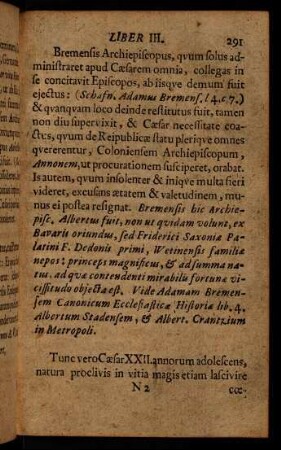 LIBER III. 291
Bremensis Archiepiscopus, qvum solus ad-
ministraret apud Cæsarem omnia, collegas in
se concitavit Episcopos, ab iisqve demum fuit
ejectus: (Schafn. Adamus Bremens. l 4. c 7.)
& qvanqvam loco deinde restitutus fuit, tamen
non diu supervixit, & Cæsar necessitate coa-
ctus, qvum de Reipublicæ statu pleriqve omnes
qvererentur, Coloniensem Archiepiscopum,
Annonem, ut procurationem susciperet, orabat.
Is autem, qvum insolenter & iniqve multa fieri
videret, excusans ætatem & valetudinem, mu-
nus ei postea resignat. Bremensis hic Archie-
pisc. Albertus fuit, non ut qvidam volunt, ex
Bavaris oriundus, sed Friderici Saxoniæ Pa-
latini F. Dedonis primi, Wetinensis familiæ
nepos: princeps magnificus, & ad summa na-
tus. ad qvæ contendenti mirabilis fortunæ vi-
cissitudo objecta est. Vide Adamam Bremen-
sem Canonicum Ecclesiasticæ Historiæ lib. 4.
Albertum Stadensem, & Albert. Crantzium
in Metropoli.
Tunc vero Cæsar XXII. annorum adolescens,
natura proclivis in vitia magis etiam lascivire
N 2 cœ-